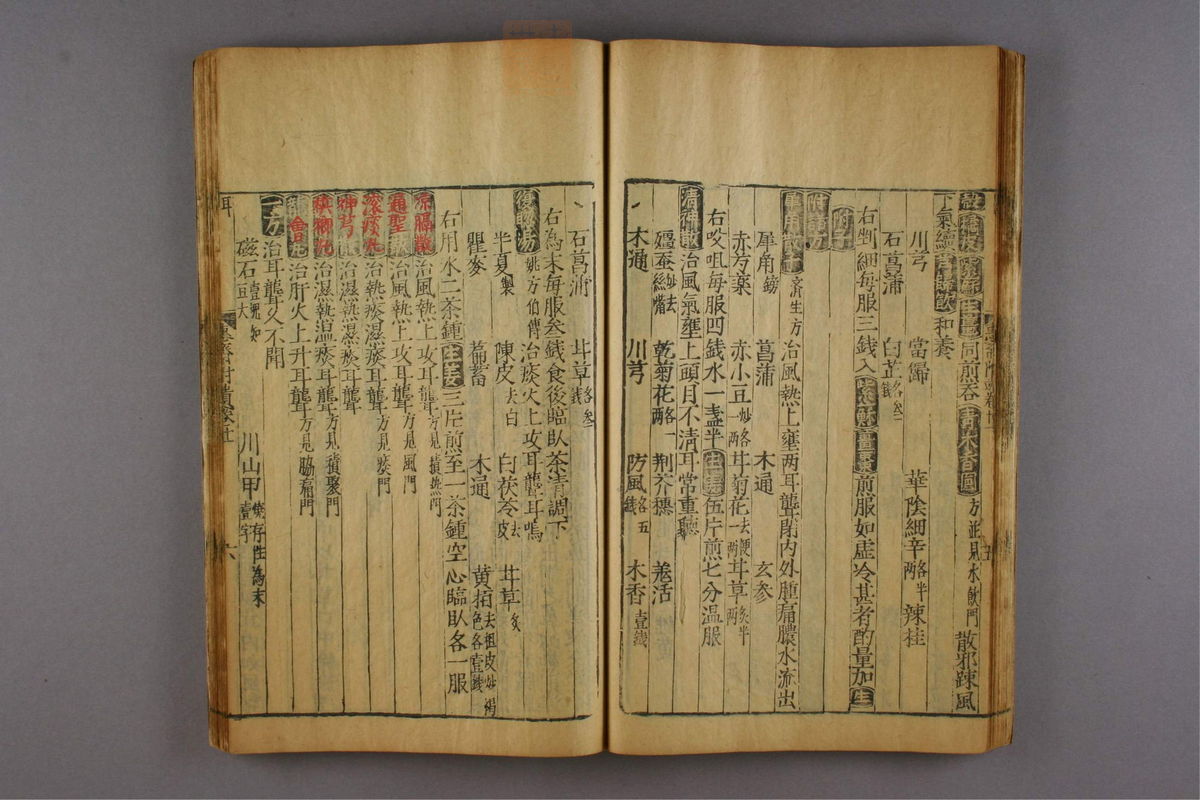 下氣 和養
同煎吞青木香圓方並見水飲門 散邪踈風
川芎 當歸 華陰細辛各半兩 辣桂
石菖蒲 白芷各叁錢
右剉細每服三錢入紫蘇薑棗煎服如虛冷甚者酌量加生
附子
附諸方
犀角飲子濟生方治風熱上壅两耳聾閉内外腫痛膿水流出
犀角鎊 菖蒲 木通 玄参
赤芍藥 赤小豆炒各一兩 甘菊花去梗一兩 甘草炙半兩
右㕮咀每服四錢水一盞半生姜伍片煎七分温服
清神散治風氣壅上頭目不清耳常重聽
殭蚕炒去絲嘴 乾菊花各一兩 荆芥穗 羗活
木通 川芎 防風各五錢 木香壹錢
石菖蒲 甘草各叁錢
右為末每服叁錢食後臨臥茶清調下
復聰湯姚方伯傳治痰火上攻耳聾耳鳴
半夏製 陳皮去白 白茯苓去皮 甘草炙
瞿麥 萹蓄 木通 黄柏去粗皮炒褐色各壹錢
右用水二茶鍾生姜三片煎至一茶鍾空心臨臥各一服
凉膈散治風熱上攻耳聾方見積熱門
通聖散治風熱上攻耳聾方見風門
滚痰丸治熱痰濕痰耳聾方見痰門
神芎治濕熱濕痰耳聾
治濕熱温痰耳聾方見積聚門
會丸治肝火上升耳聾方見脇痛門
一方治耳聾久不聞
磁石壹塊如豆大 川山甲燒存性為末壹字
耳 六